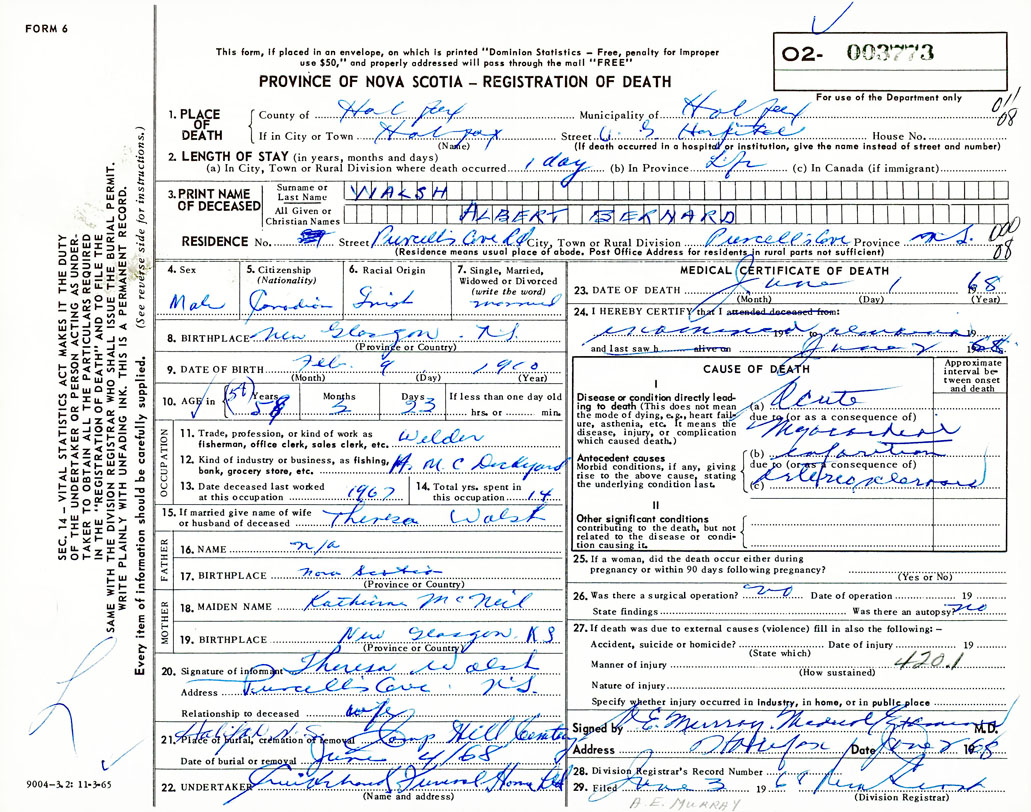 FORM 6
This form, if placed in an envelope, on which is printed "Dominion Statistics – Free, penalty for improper
use $50," and properly addressed will pass through the mail "FREE"
PROVINCE OF NOVA SCOTIA – REGISTRATION OF DEATH
02- 003773
For use of the Department only
011
08
1. PLACE OF DEATH
County of Halifax Municipality of Halifax
If in City or Town Halifax Street V. G. Hospital House No.
(Name) (If death occurred in a hospital or institution, give the name instead of street and number)
2. LENGTH OF STAY (in years, months and days)
(a) In City, Town or Rural Division where death occurred 1 day (b) In Province Life (c) In Canada (if immigrant)
3. PRINT NAME OF DECEASED
Surname or Last Name WALSH
All Given or Christian Names ALBERT BERNARD
RESIDENCE No. Street Purcell's Cove Rd City, Town or Rural Division Purcell's Cove Province N.S.
(Residence means usual place of abode. Post Office Address for residents in rural parts not sufficient)
000
08
4. Sex Male
5. Citizenship (Nationality) Canadian
6. Racial Origin Irish
7. Single, Married, Widowed or Divorced (write the word) married
8. BIRTHPLACE New Glasgow N.S.
(Province or Country)
9. DATE OF BIRTH Feb. 9 1910
(Month) (Day) (Year)
10. AGE in (58) Years 58 Months 3 Days 23 If less than one day old
hrs. or min.
OCCUPATION
11. Trade, profession, or kind of work as fishermen, office clerk, sales clerk, etc. Welder
12. Kind of industry or business, as fishing, bank, grocery store, etc. H. M. C Dockyard
13. Date deceased last worked at this occupation 1967
14. Total yrs. spent in this occupation 14
15. If married give name of wife or husband of deceased Theresa Walsh
FATHER
16. NAME n/a
17. BIRTHPLACE Nova Scotia
(Province or Country)
MOTHER
18. MAIDEN NAME Katherine McNeil
19. BIRTHPLACE New Glasgow N S
(Province or Country)
20. Signature of informant Theresa Walsh
Address Purcell's Cove N.S.
Relationship to deceased wife
21. Place of burial, cremation or removal Halifax Camp Hill Cemetery
Date of burial or removal June 4/68
22. UNDERTAKER Cruikshanks Funeral Home Ltd
(Name and address)
MEDICAL CERTIFICATE OF DEATH
23. DATE OF DEATH June 1 68
(Month) (Day) (Year)
24. I HEREBY CERTIFY that I attended deceased from:
examined 19 remains 19
and last saw h alive on June 2 1968
CAUSE OF DEATH
Approximate interval between onset and death
I
Disease or condition directly leading to death (This does not mean the mode of dying, e.g., heart failure, asthenia, etc. It means the disease, injury, or complication which caused death.)
(a) Acute
due to (or as a consequence of)
Myocardial
Antecedent causes
Morbid conditions, if any, giving rise to the above cause, stating the underlying condition last.
(b) infarction
due to (or as a consequence of)
(c) arteriosclerosis
II
Other significant conditions
contributing to the death, but not related to the disease or condition causing it.
25. If a woman, did the death occur either during
pregnancy or within 90 days following pregnancy?
(Yes or No)
26. Was there a surgical operation? no Date of operation 19
State findings Was there an autopsy? no
27. If death was due to external causes (violence) fill in also the following: –
Accident, suicide or homicide? Date of injury 19
(State which)
Manner of injury 420.1
(How sustained)
Nature of injury
Specify whether injury occurred in industry, in home, or in public place
Signed by A E. Murray, Medical Examiner M.D.
Address Halifax Date June 2 1968
28. Division Registrar's Record Number
29. Filed June 3 1968
(Division Registrar)
A. E. MURRAY
SEC. 14 – VITAL STATISTICS ACT MAKES IT THE DUTY
OF THE UNDERTAKER OR PERSON ACTING AS UNDER-
TAKER TO OBTAIN ALL THE PARTICULARS REQUIRED
IN THE "REGISTRATION OF DEATH" AND TO FILE THE
SAME WITH THE DIVISION REGISTRAR WHO SHALL ISSUE THE BURIAL PERMIT.
WRITE PLAINLY WITH UNFADING INK. THIS IS A PERMANENT RECORD.
Every item of information should be carefully supplied. (See reverse side for instructions.)
9004-3.2: 11-3-65